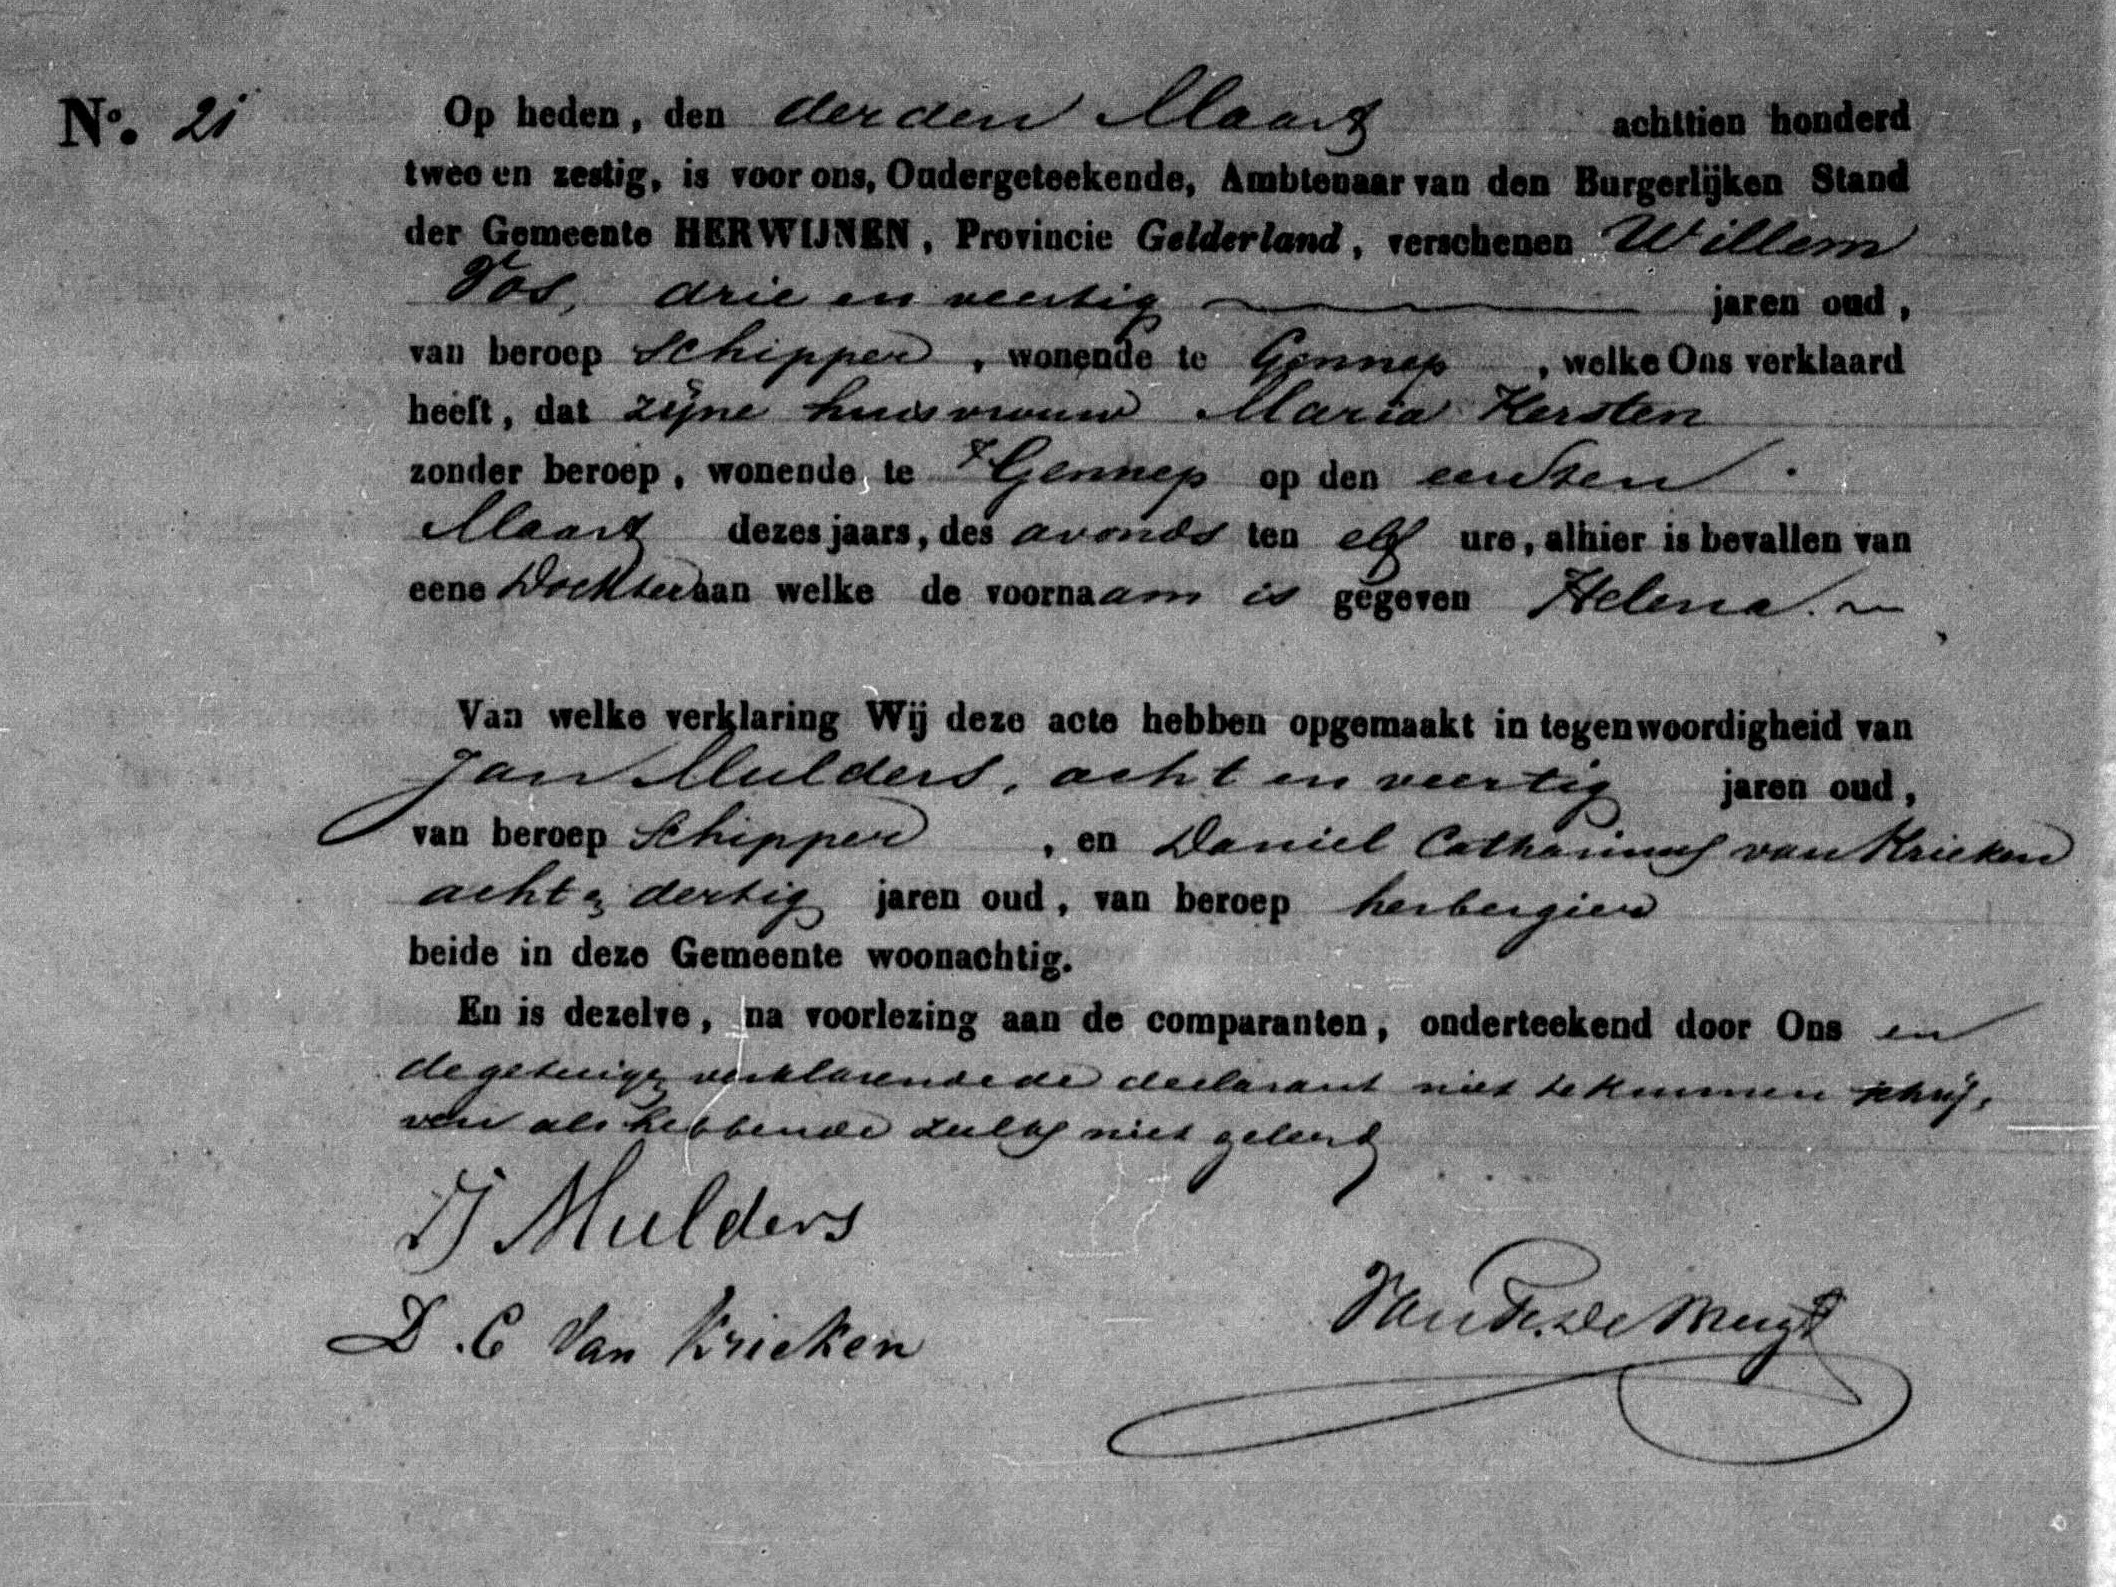 No. 21
Op heden, den derden Maart achttien honderd
twee en zestig, is voor ons, Ondergeteekende, Ambtenaar van den Burgerlijken Stand
der Gemeente HERWIJNEN, Provincie Gelderland, verschenen Willem
Vos, drie en veertig jaren oud,
van beroep Schipper, wonende te Gennep, welke Ons verklaard
heeft, dat zijne huisvrouw Maria Kersten
zonder beroep, wonende te Gennep op den eersten
Maart dezes jaars, des avonds ten elf ure, alhier is bevallen van
eene Dochter aan welke de voornaam is gegeven Helena.
Van welke verklaring Wij deze acte hebben opgemaakt in tegenwoordigheid van
Jan Mulders, acht en veertig jaren oud,
van beroep Schipper, en Daniel Catharinus van Krieken
acht en dertig jaren oud, van beroep herbergier
beide in deze Gemeente woonachtig.
En is dezelve, na voorlezing aan de comparanten, onderteekend door Ons en
de getuigen verklarende de declarant niet te kunnen schrij-
ven als hebbende zulks niet geleerd
J Mulders
D. C Van Krieken